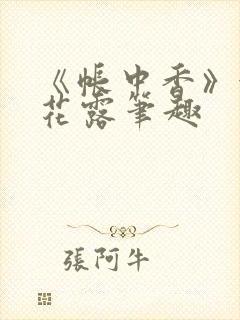 《帳中香》
花露筆趣
張阿牛